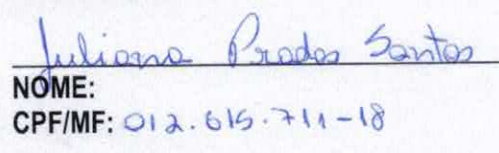 Juliana Prados Santos
NOME:
CPF/MF: 012.615.711-18